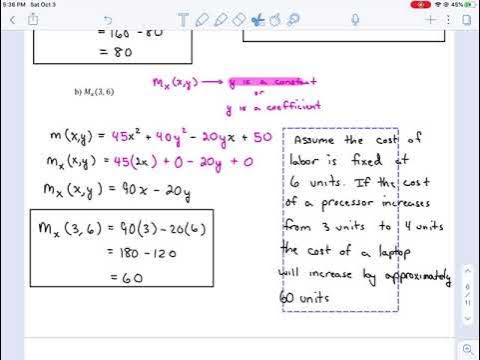 5:36 PM Sat Oct 3 45%
= 160 - 80
= 80
b) Mₓ(3, 6)
mₓ(x,y) → y is a constant
or
y is a coefficient
m(x,y) = 45x² + 40y² - 20yx + 50
mₓ(x,y) = 45(2x) + 0 - 20y + 0
mₓ(x,y) = 90x - 20y
mₓ(3,6) = 90(3) - 20(6)
= 180 - 120
= 60
Assume the cost of
labor is fixed at
6 units. If the cost
of a processor increases
from 3 units to 4 units
the cost of a laptop
will increase by approximately
60 units
6
/
11